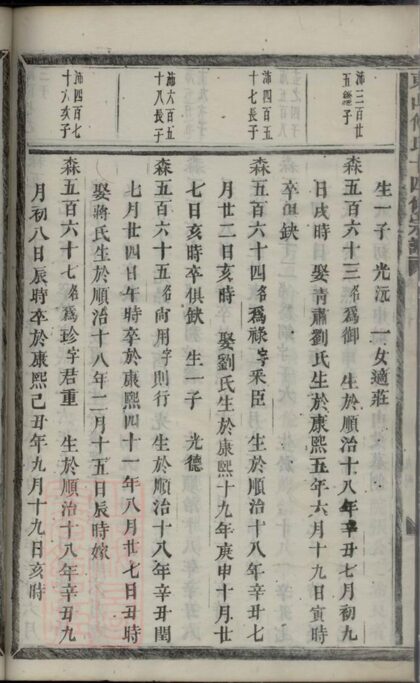 生一子 光沅 一女適莊
沛三百廿五繼子
森五百六十三名爲御 生於順治十八年辛丑七月初九
日戌時 娶青肅劉氏生於康熙五年六月十九日寅時
卒俱缺
沛四百五十七長子
森五百六十四名爲祿字采臣 生於順治十八年辛丑七
月廿二日亥時 娶劉氏生於康熙十九年庚申十月廿
七日亥時卒俱缺 生一子 光德
沛六百五十八長子
森五百六十五名尚用字則行 生於順治十八年辛丑閏
七月廿四日午時卒於康熙四十一年八月廿七日丑時
娶蔣氏生於順治十八年二月十五日辰時嫁
沛四百七十六次子
森五百六十七名爲珍字君重 生於順治十八年辛丑九
月初八日辰時卒於康熙己丑年九月十九日亥時